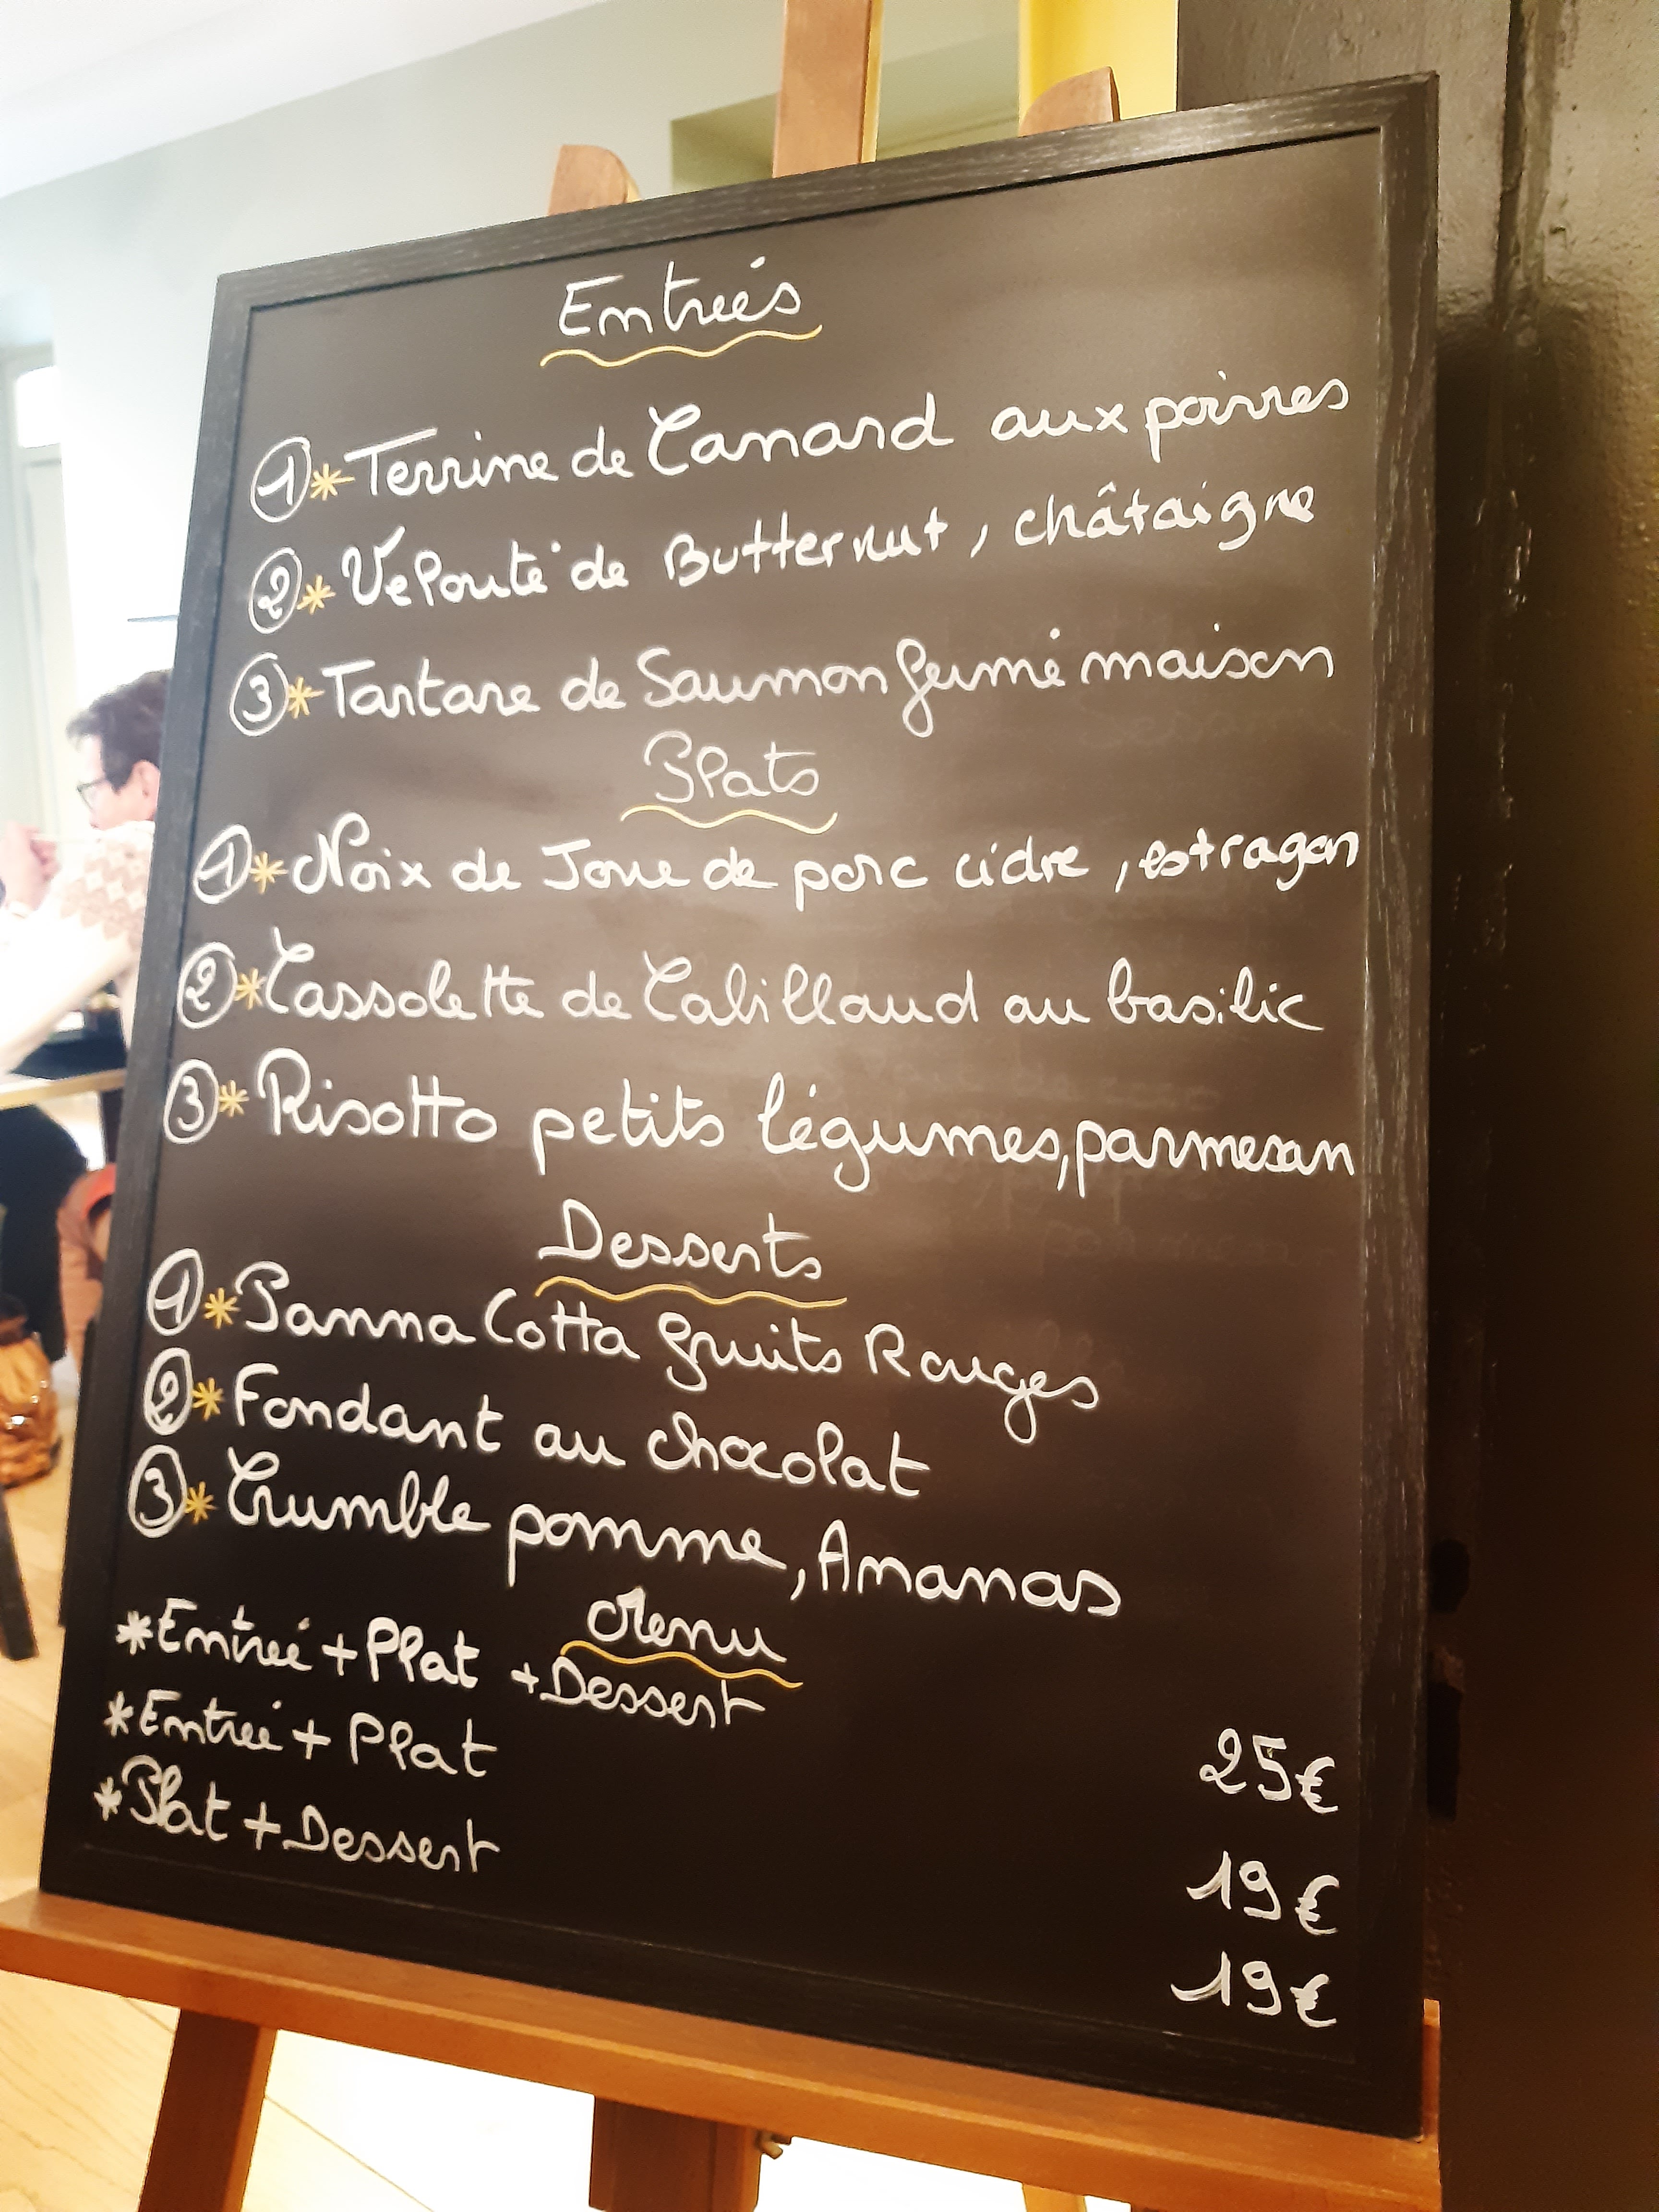 Entrées
1 * Terrine de Canard aux poivres
2 * Velouté de Butternut, châtaigne
3 * Tartare de Saumon fumé maison
Plats
1 * Noix de Joue de porc cidre, estragon
2 * Cassolette de Cabillaud au basilic
3 * Risotto petits légumes, parmesan
Desserts
1 * Panna Cotta fruits Rouges
2 * Fondant au chocolat
3 * Crumble pomme, Ananas
Menu
* Entrée + Plat + Dessert 25€
* Entrée + Plat 19€
* Plat + Dessert 19€